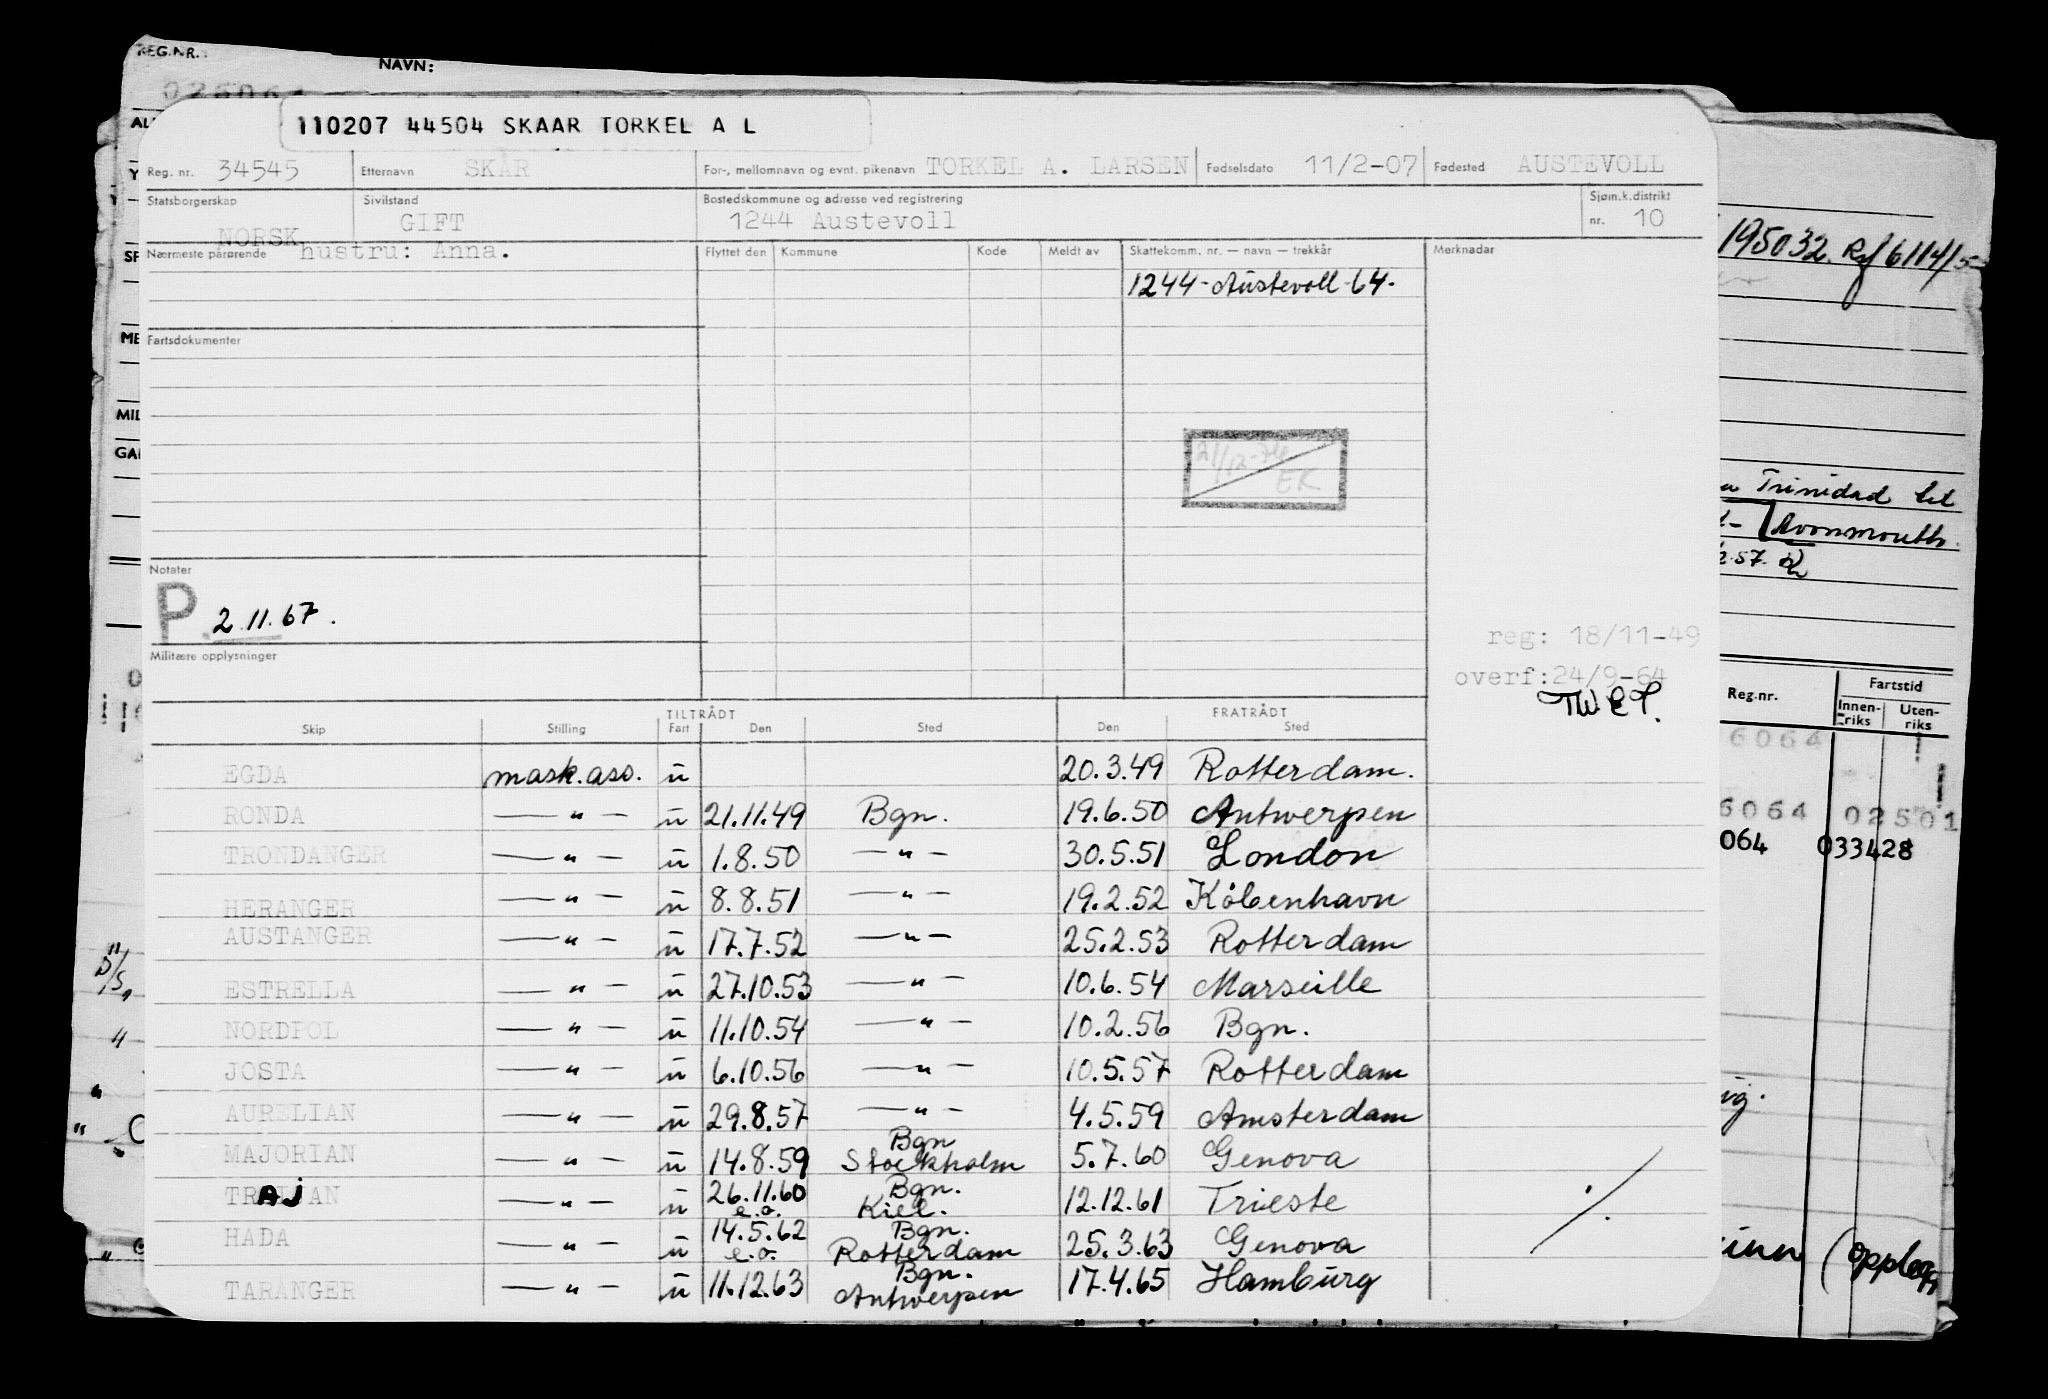 REG.NR.
NAVN:
110207 44504 SKAAR TORKEL A L
Reg. nr. 34545 Etternavn SKÅR For-, mellomnavn og evnt. pikenavn TORKEL A. LARSEN Fødselsdato 11/2-07 Fødested AUSTEVOLL
Statsborgerskap NORSK Sivilstand GIFT Bostedskommune og adresse ved registrering 1244 Austevoll Sjøm.k.distrikt nr. 10
Nærmeste pårørende hustru: Anna. Flyttet den Kommune Kode Meldt av Skattekomm. nr. — navn — trekkår Merknader
1244 - Austevoll - 64.
195032.
Fartsdokumenter
21/12-
EK
Trinidad
Avonmouth.
57.
Notater
P. 2.11.67.
Militære opplysninger
reg: 18/11-49
overf:24/9-64
Reg.nr. Fartstid
Innenriks Utenriks
TILTRÅDT FRATRÅDT
Skip Stilling Fart Den Sted Den Sted
EGDA mask.ass. u 20.3.49 Rotterdam.
RONDA — " — u 21.11.49 Bgn. 19.6.50 Antwerpen
TRONDANGER — " — u 1.8.50 — " — 30.5.51 London
HERANGER — " — u 8.8.51 — " — 19.2.52 København
AUSTANGER — " — u 17.7.52 — " — 25.2.53 Rotterdam
ESTRELLA — " — u 27.10.53 — " — 10.6.54 Marseille
NORDPOL — " — u 11.10.54 — " — 10.2.56 Bgn.
JOSTA — " — u 6.10.56 — " — 10.5.57 Rotterdam
AURELIAN — " — u 29.8.57 — " — 4.5.59 Amsterdam
MAJORIAN — " — u 14.8.59 Bgn Stockholm 5.7.60 Genova
TRAJAN — " — u 26.11.60 e.o. Bgn. Kiel. 12.12.61 Trieste
HADA — " — u 14.5.62 e.o. Bgn. Rotterdam 25.3.63 Genova
TARANGER — " — u 11.12.63 Bgn. Antwerpen 17.4.65 Hamburg
6064
6064 02501
064 033428